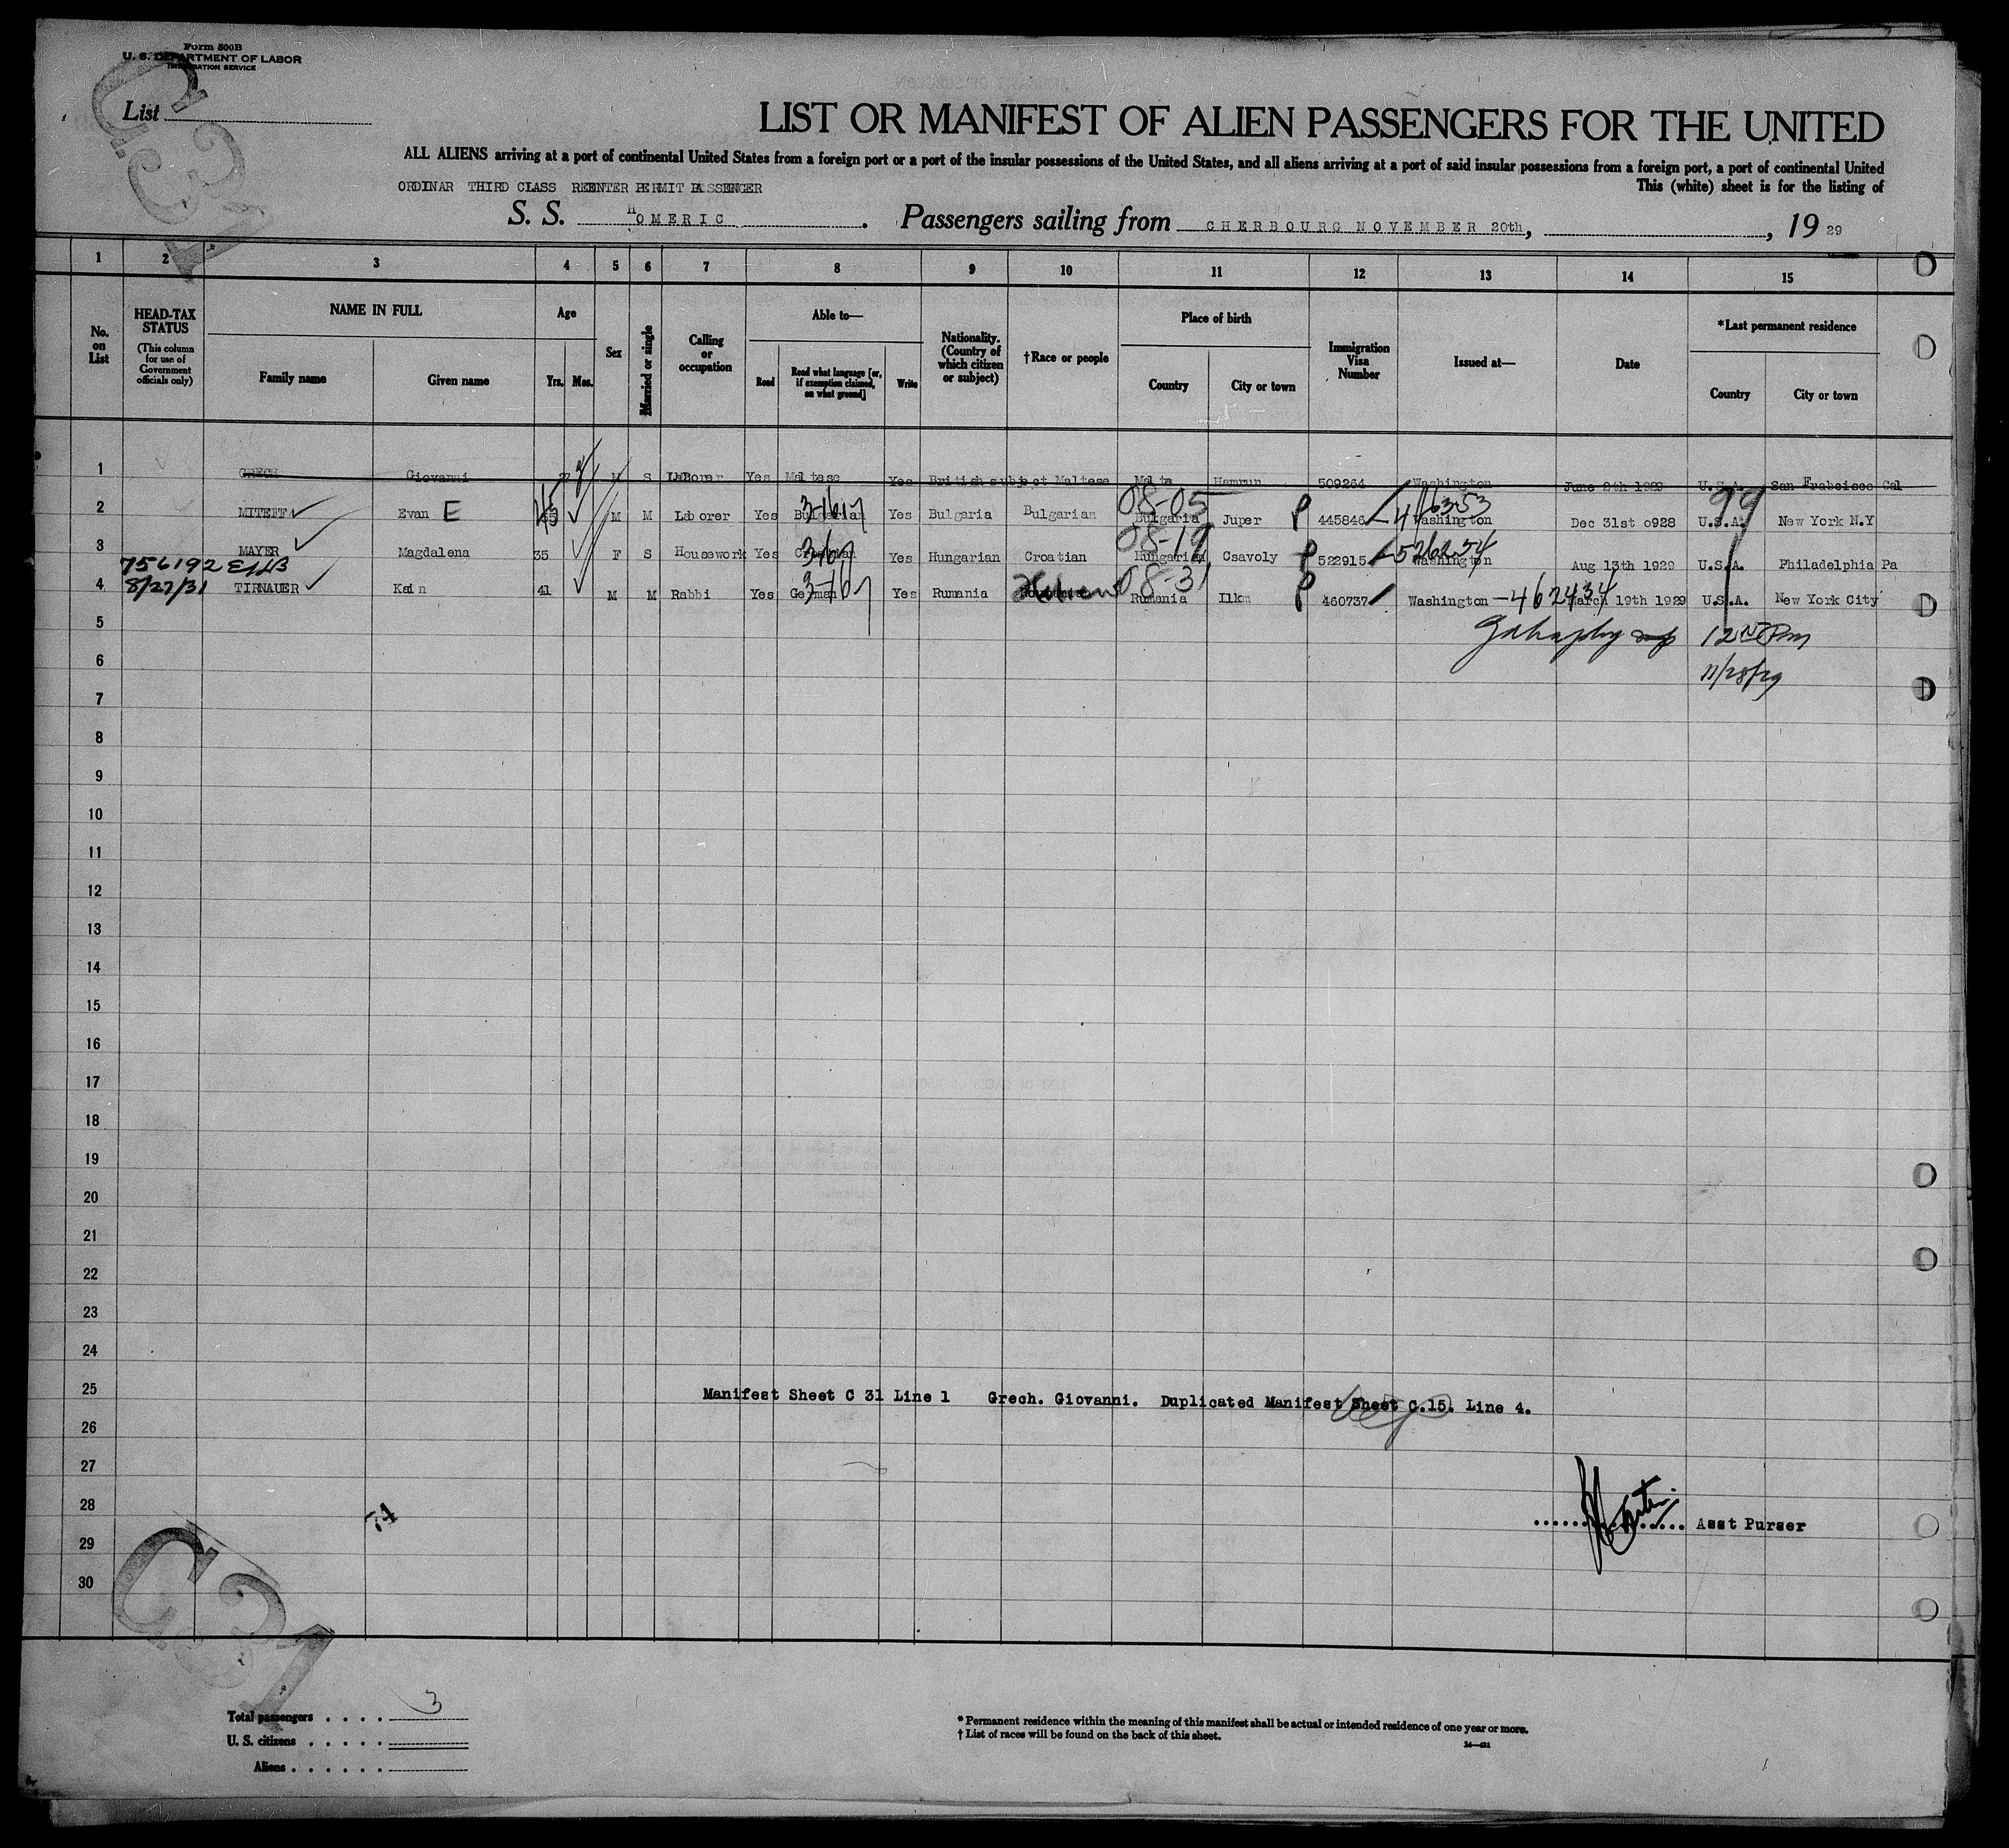 Form 500B
U. S. DEPARTMENT OF LABOR
IMMIGRATION SERVICE
C31
List
LIST OR MANIFEST OF ALIEN PASSENGERS FOR THE UNITED
ALL ALIENS arriving at a port of continental United States from a foreign port or a port of the insular possessions of the United States, and all aliens arriving at a port of said insular possessions from a foreign port, a port of continental United
ORDINAR THIRD CLASS REENTER PERMIT PASSENGER
This (white) sheet is for the listing of
S. S. HOMERIC. Passengers sailing from CHERBOURG NOVEMBER 20th, , 19 29
1 2 3 4 5 6 7 8 9 10 11 12 13 14 15
No. on List
HEAD-TAX STATUS
(This column for use of Government officials only)
NAME IN FULL
Family name Given name
Age
Yrs. Mos.
Sex
Married or single
Calling or occupation
Able to—
Read Read what language [or, if exemption claimed, on what ground] Write
Nationality. (Country of which citizen or subject)
†Race or people
Place of birth
Country City or town
Immigration Visa Number
Issued at—
Date
*Last permanent residence
Country City or town
1 GRECH Giovanni 27 M S LaBorer Yes Maltese Yes British subject Maltese Malta Hamrun 509264 Washington June 8th 1929 U.S.A. San Frabcisco Cal
08-05 416353 99
2 MITEFFA Evan E M M Laborer Yes Bulgarian Yes Bulgaria Bulgarian Bulgaria Juper P 445846 Washington Dec 31st o928 U.S.A. New York N.Y
08-19 526254
3 MAYER Magdalena 35 F S Housework Yes Croatian Yes Hungarian Croatian Hungarian Csavoly P 522915 Washington Aug 13th 1929 U.S.A. Philadelphia Pa
756192
8/27/31
4 TIRNAUER Kain 41 M M Rabbi Yes German Yes Rumania Hebrew 08-31 Rumania Ilkm P 460737 Washington -462434 March 19th 1929 U.S.A. New York City
5
11/28/29
6
7
8
9
10
11
12
13
14
15
16
17
18
19
20
21
22
23
24
25 Manifest Sheet C 31 Line 1 Grech. Giovanni. Duplicated Manifest Sheet C.15. Line 4.
26
27
28
Asst Purser
29
30
C31
Total passengers . . . . 3
U. S. citizens . . . . .
Aliens . . . . . .
* Permanent residence within the meaning of this manifest shall be actual or intended residence of one year or more.
† List of races will be found on the back of this sheet.